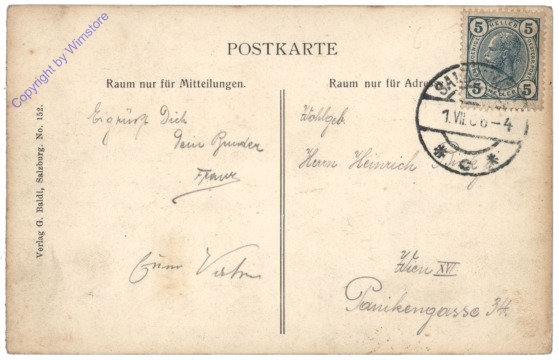 Copyright by Wimstore
POSTKARTE
Raum nur für Mitteilungen.
Raum nur für Adre
5 HELLER 5
5 HELLER 5
SAL
1.VII.06-4
* c *
Verlag G. Baldi, Salzburg. No. 152.
Dich
Dein Bruder
Franz
Wohlgeb.
Herrn Heinrich
Wien XVI
Panikengasse 34